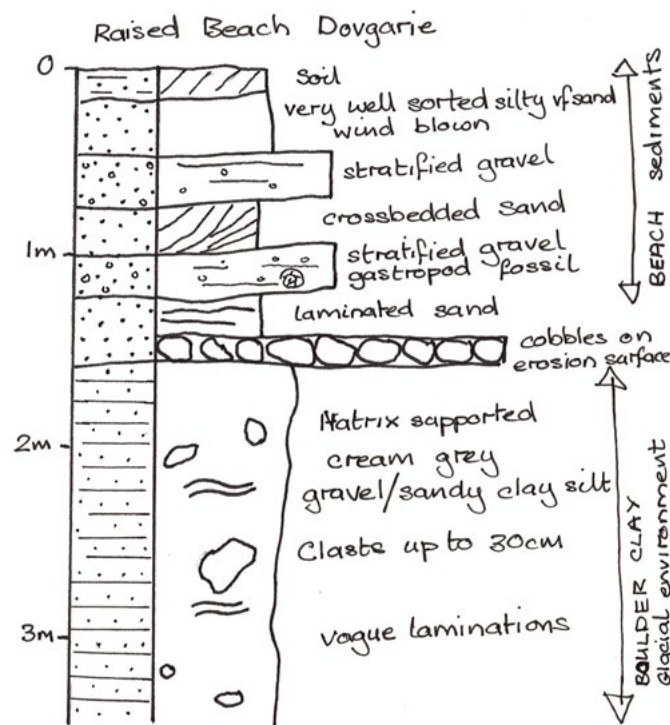 Raised Beach Dovgarie
0
Soil
very well sorted silty vf sand
wind blown
stratified gravel
crossbedded sand
1m
stratified gravel
gastropod fossil
laminated sand
cobbles on
erosion surface
BEACH sediments
2m
Matrix supported
cream grey
gravel/sandy clay silt
Clasts up to 30cm
3m
vague laminations
BOULDER CLAY
Glacial environment